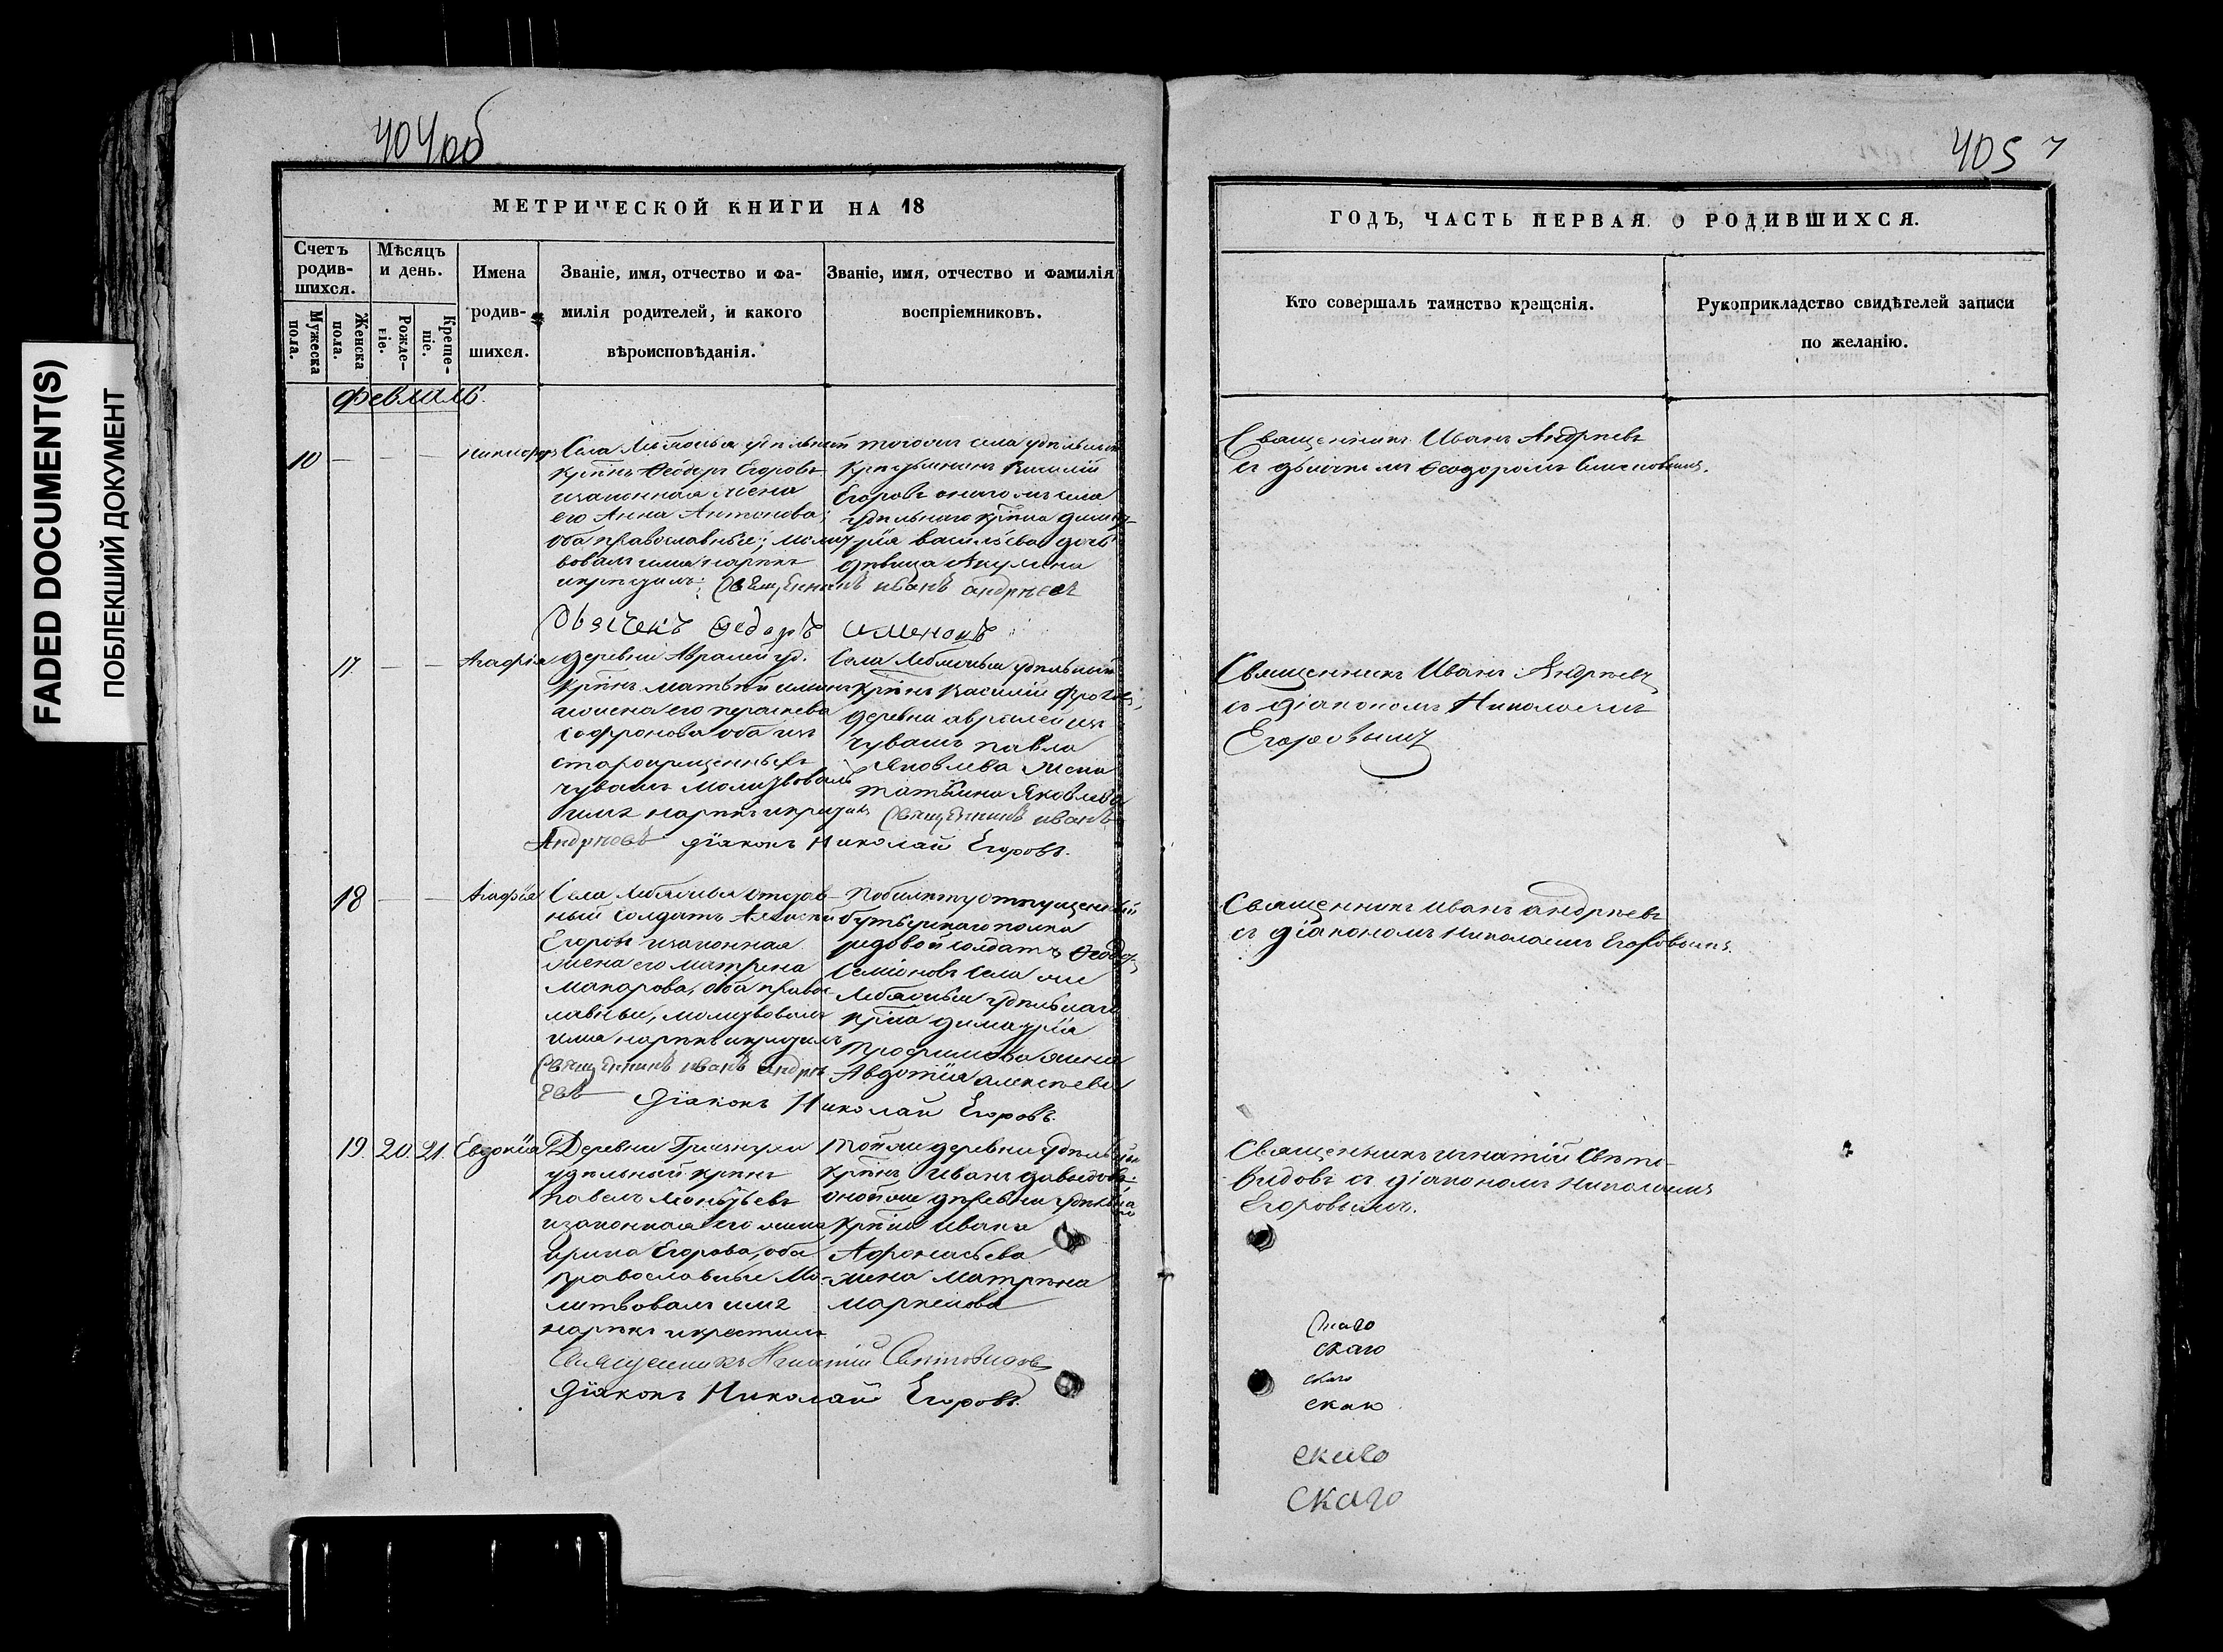 FADED DOCUMENT(S)
ПОБЛЕКШИЙ ДОКУМЕНТ
404об
МЕТРИЧЕСКОЙ КНИГИ НА 18
Счетъ родив-шихся.
Мужеска пола.
Женска пола.
Мѣсяцъ и день.
Рожде-ніе.
Креще-ніе.
Имена родив-шихся.
Званіе, имя, отчество и фа-
милія родителей, и какого
вѣроисповѣданія.
Званіе, имя, отчество и фамилія
воспріемниковъ.
Февраль
10 — — —
Села удѣльный
Крпнъ Ѳеодоръ Егоровъ
изаконная жена
его Анна Антонова;
оба православные; молит
вовалъ имя нарекъ
Священникъ иванъ андрѣевъ
Дьячекъ Ѳедоръ
тогожъ села удѣльный
Василій
Егоровъ онагожъ села
удѣльнаго крпна дими-
трія васильева дочь
дѣвица Акулина
17. — — Агафія
деревни Авралей уд.
Крпнъ Матвѣй
жена его
Софронова оба изъ
старокрещенныхъ
чувашъ молитвовалъ
имя нарекъ Священникъ иванъ
Андрѣевъ діаконъ Николай Егоровъ.
Села удѣльный
крпнъ Василій
деревни авралей изъ
чувашъ павла
Яковлева жена
татьяна Яковлева
18 — — Агафія
Села отстав-
ный Солдатъ
Егоровъ изаконная
жена его матрена
Макарова, оба правос-
лавные, молитвовалъ
имя нарекъ
Священникъ иванъ андрѣ
евъ діаконъ Николай Егоровъ.
побилету отпущенный
бутырскаго полка
рядовой солдатъ Ѳеодоръ
Семіоновъ Села же
удѣльнаго
крпна димитрія
трофимова жена
Авдотія алексѣева
19. 20. 21. Евдокія
Деревни
удѣльный крпнъ
павелъ
изаконная его жена
ирина Егорова, оба
православные Мо-
литвовалъ имя
нарекъ икрестилъ
Священникъ Игнатій Свѣтовидовъ
діаконъ Николай Егоровъ.
тойже деревни удѣльный
крпнъ Иванъ давыдовъ;
онойже деревни удѣльнаго
Крпна ивана
Афонасьева
жена Матрена
маркелова
405
7
ГОДЪ, ЧАСТЬ ПЕРВАЯ О РОДИВШИХСЯ.
Кто совершалъ таинство крещенія.
Рукоприкладство свидѣтелей записи
по желанію.
Священникъ Иванъ Андрѣевъ
съ дьячкомъ Ѳеодоромъ
Священникъ Иванъ Андрѣевъ
съ діакономъ Николаемъ
Егоровымъ
Священникъ иванъ андрѣевъ
съ діакономъ николаемъ Егоровымъ.
Священникъ игнатій Свѣто-
видовъ съ діакономъ николаемъ
Егоровымъ.
скаго
скаго
скаго
скаго
скаго
скаго